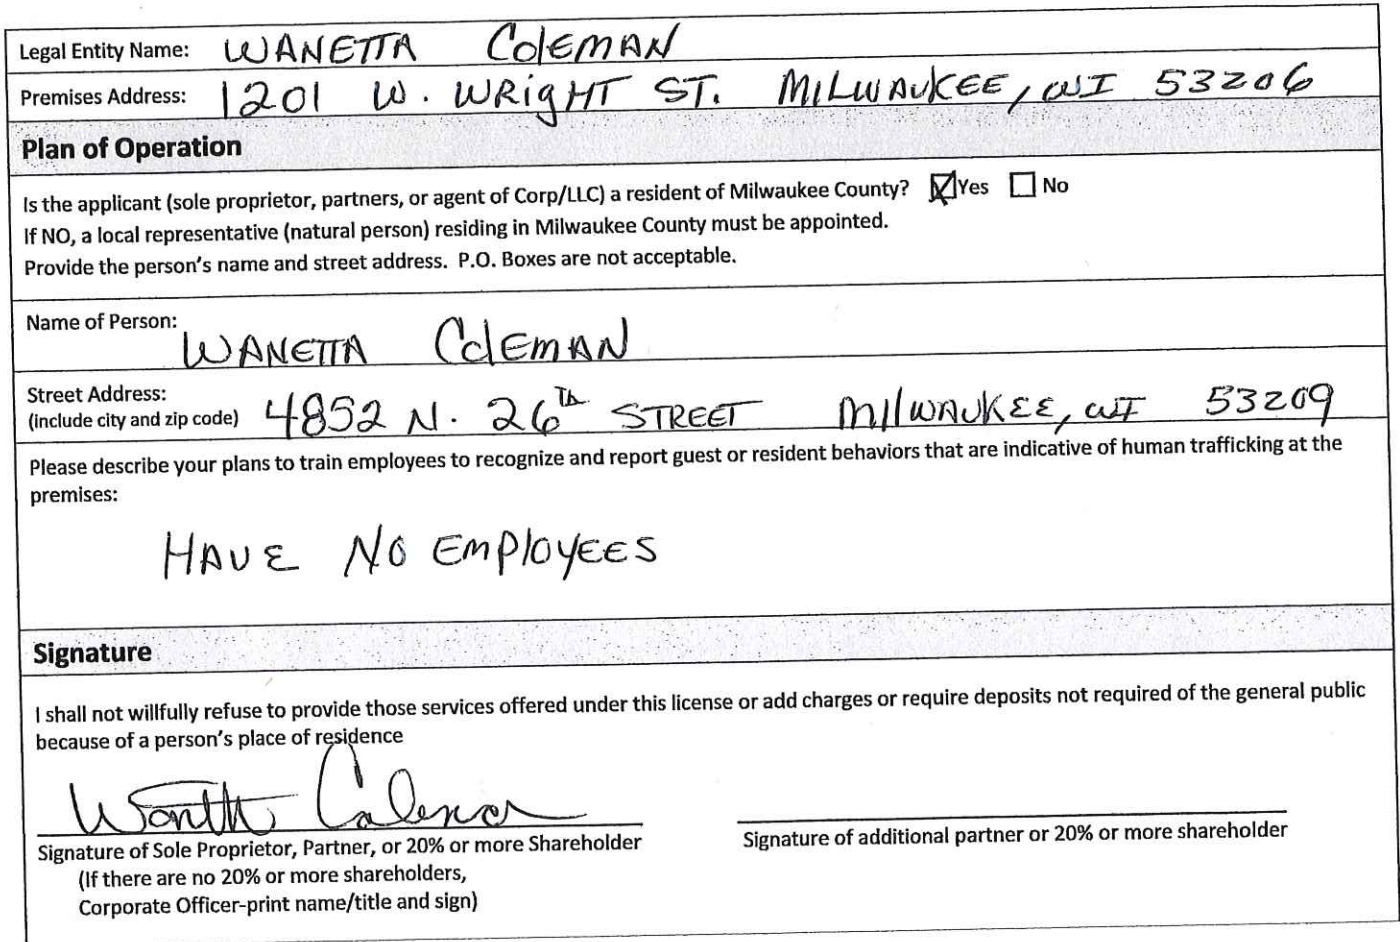 Legal Entity Name: WANETTA COlEMAN
Premises Address: 1201 W. WRigHT ST. MILWAUKEE, WI 53206
Plan of Operation
Is the applicant (sole proprietor, partners, or agent of Corp/LLC) a resident of Milwaukee County? ☒ Yes ☐ No
If NO, a local representative (natural person) residing in Milwaukee County must be appointed.
Provide the person's name and street address. P.O. Boxes are not acceptable.
Name of Person: WANETTA COlEMAN
Street Address:
(include city and zip code) 4852 N. 26th STREET MIlWAUKEE, WI 53209
Please describe your plans to train employees to recognize and report guest or resident behaviors that are indicative of human trafficking at the
premises:
HAVE NO EMPlOYEES
Signature
I shall not willfully refuse to provide those services offered under this license or add charges or require deposits not required of the general public
because of a person's place of residence
Wanetta Coleman
Signature of Sole Proprietor, Partner, or 20% or more Shareholder
(If there are no 20% or more shareholders,
Corporate Officer-print name/title and sign)
Signature of additional partner or 20% or more shareholder